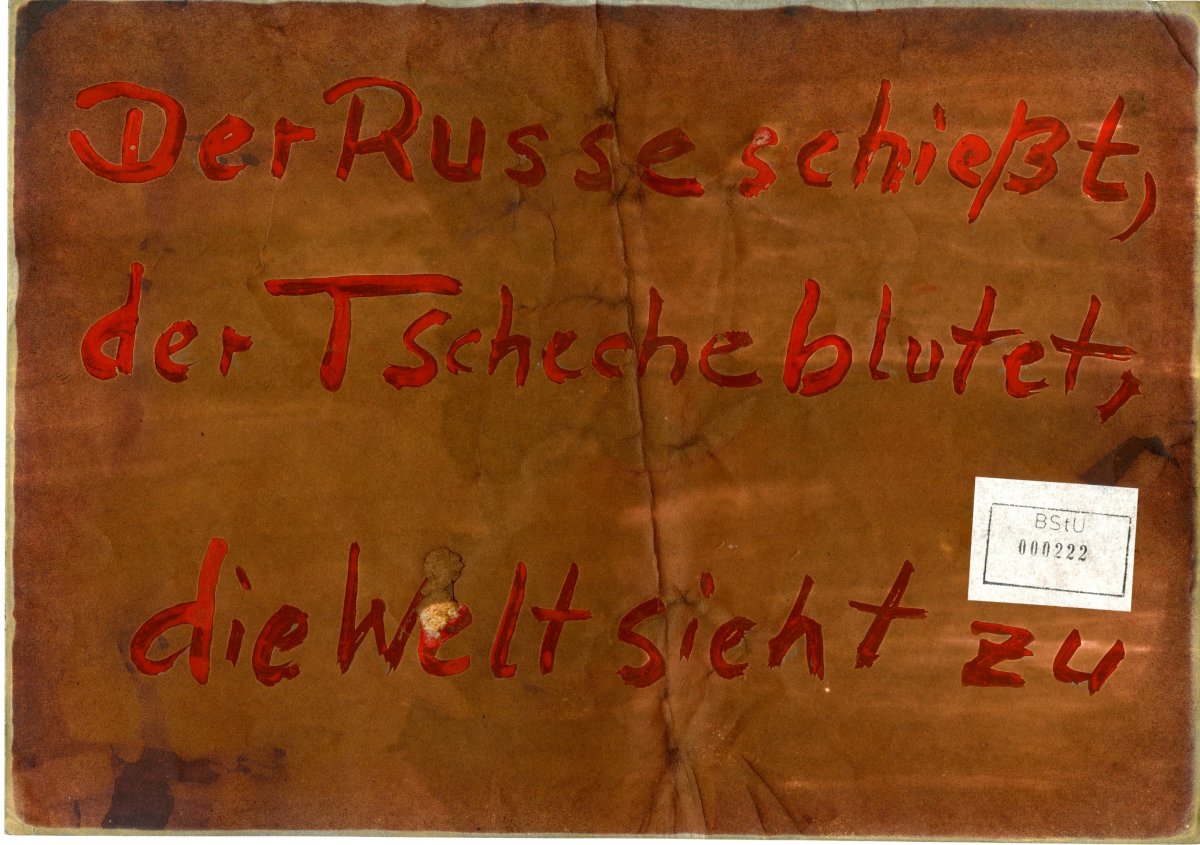 Der Russe schießt,
der Tscheche blutet,
BStU
000222
die Welt sieht zu